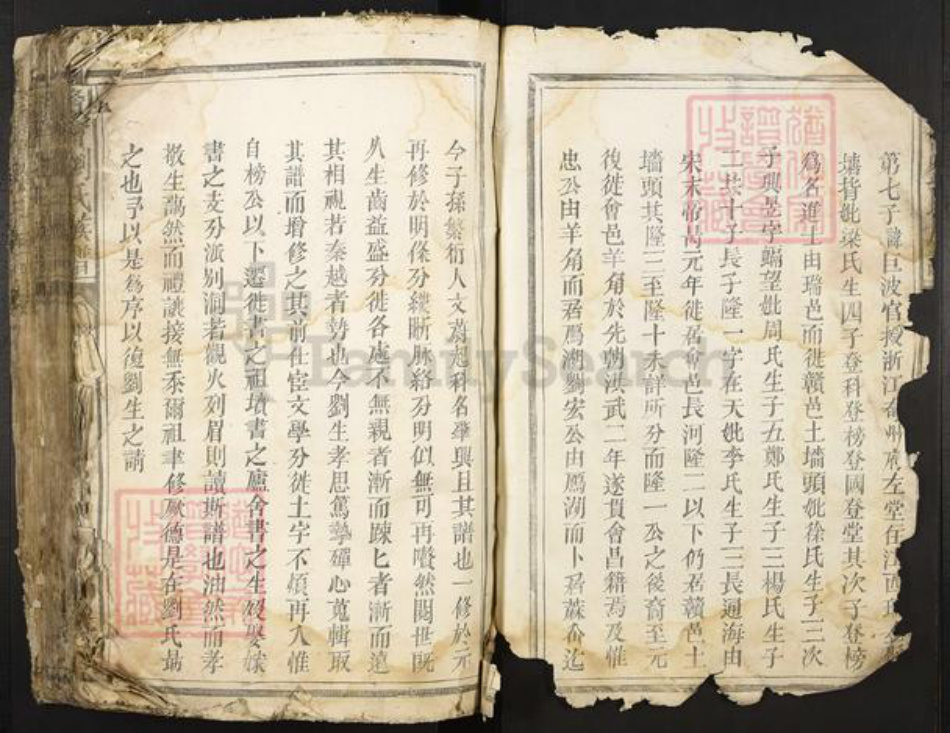 第七子諱巨波官授浙江 州府左堂在江西
墳背妣梁氏生四子登科登榜登國登堂其次子登榜
爲名進士由瑞邑而徙贛邑土墻頭妣徐氏生子三次
子興昱字蝠望妣周氏生子五鄭氏生子三楊氏生子
二共十子長子隆一字在天妣李氏生子三長通海由
宋末帝昺元年徙居會邑長河隆二以下仍居贛邑土
墻頭其隆三至隆十未詳所分而隆一公之後裔至元
復徙會邑羊角於先朝洪武二年遂貫會昌籍焉及惟
忠公由羊角而居鴈湖劉宏公由鴈湖而卜居蔴奋迄
今子孫繁衍人文蔚起科名肇興且其譜也一修於元
再修於明條分縷晰脉絡分明似無可再贅然閱世既
久生齒益盛分徙各處不無親者漸而踈匕者漸而遠
其相視若秦越者勢也今劉生孝思篤摯殫心蒐輯取
其譜而增修之其前仕宦文學分徙土字不煩再入惟
自榜公以下遷徙書之祖墳書之廬舍書之生殁娶嫁
書之支分派別洞若觀火列眉則讀斯譜也油然而孝
敬生藹然而禮讓接無忝爾祖聿修厥德是在劉氏勗
之也予以是爲序以復劉生之請
劉氏族譜
FamilySearch